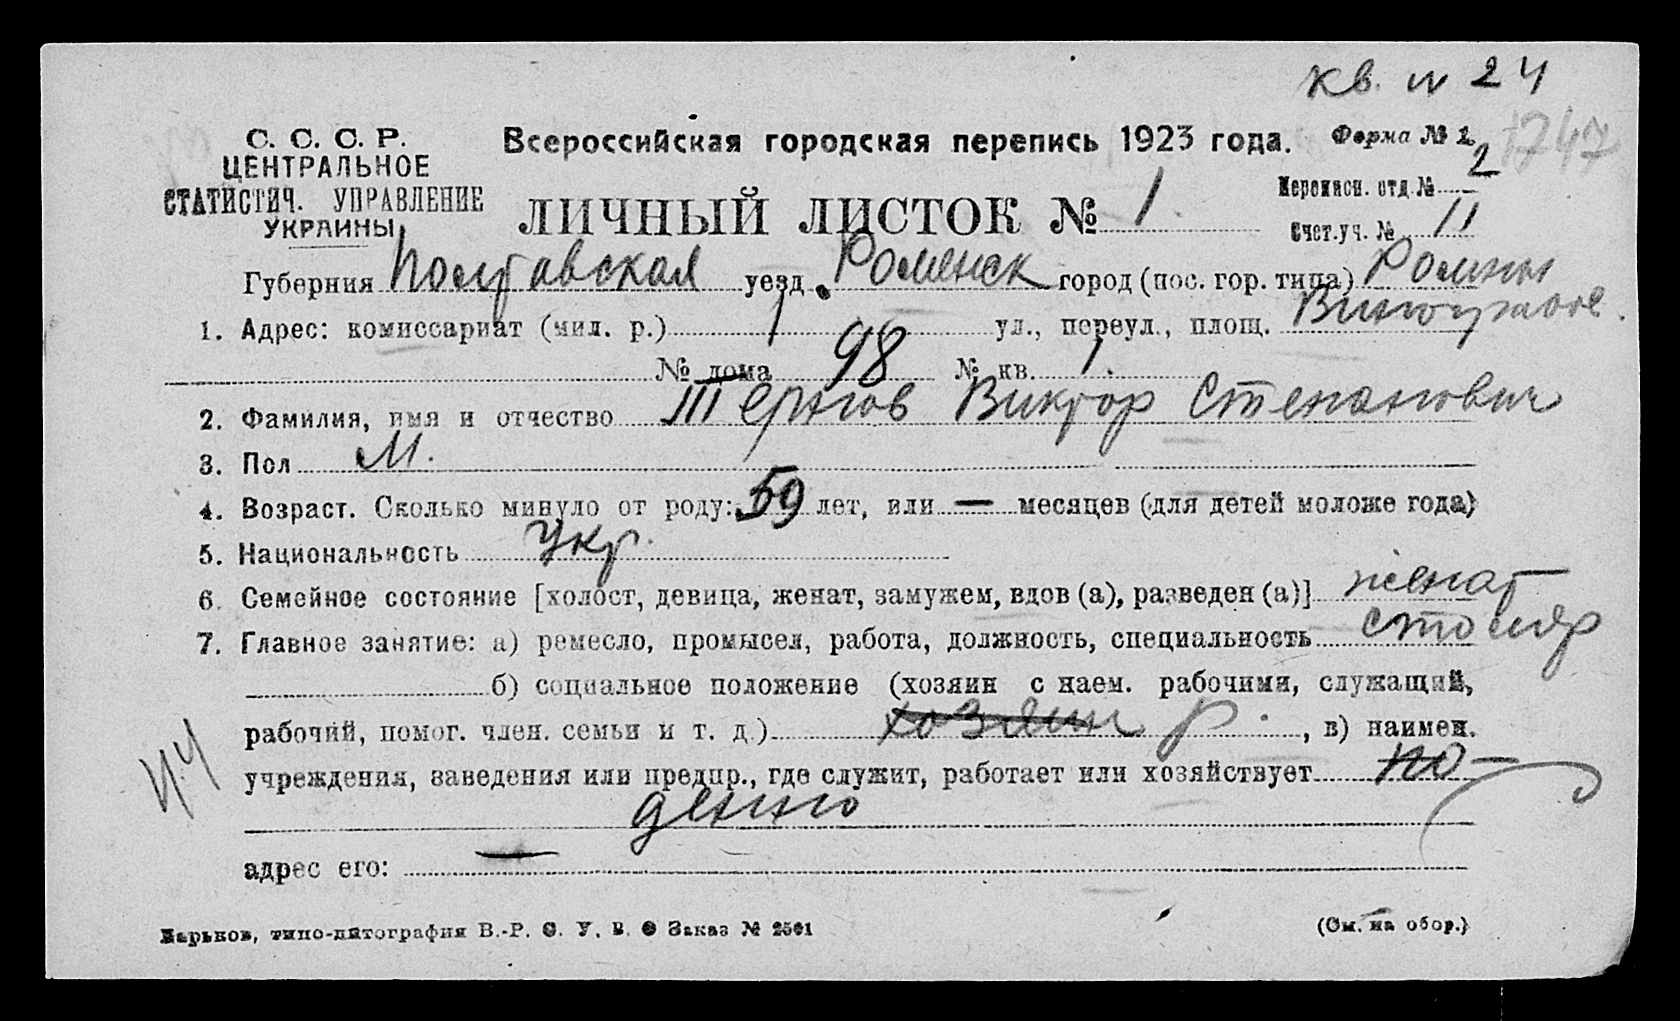 кв. № 24
С. С. С. Р.
ЦЕНТРАЛЬНОЕ
СТАТИСТИЧ. УПРАВЛЕНИЕ
УКРАИНЫ
Всероссийская городская перепись 1923 года.
Форма № 1.
1747
ЛИЧНЫЙ ЛИСТОК № 1
Переписн. отд. № 2
Счет. уч. № 11
Губерния Полтавская уезд Роменск город (пос. гор. типа) Ромны
1. Адрес: комиссариат (мил. р.) 1 ул., переул., площ.
№ дома 98 № кв. 1.
2. Фамилия, имя и отчество Виктор Степанович
3. Пол М.
4. Возраст. Сколько минуло от роду: 59 лет, или — месяцев (для детей моложе года)
5. Национальность Укр.
6. Семейное состояние [холост, девица, женат, замужем, вдов (а), разведен (а)] женат
7. Главное занятие: а) ремесло, промысел, работа, должность, специальность столяр
б) социальное положение (хозяин с наем. рабочими, служащий,
рабочий, помог. член. семьи и т. д.) хозяин р. , в) наимен.
учреждения, заведения или предпр., где служит, работает или хозяйствует по-
денно
адрес его: —
Харьков, типо-литография В.-Р. С. У. В. О Заказ № 2561
(См. на обор.)